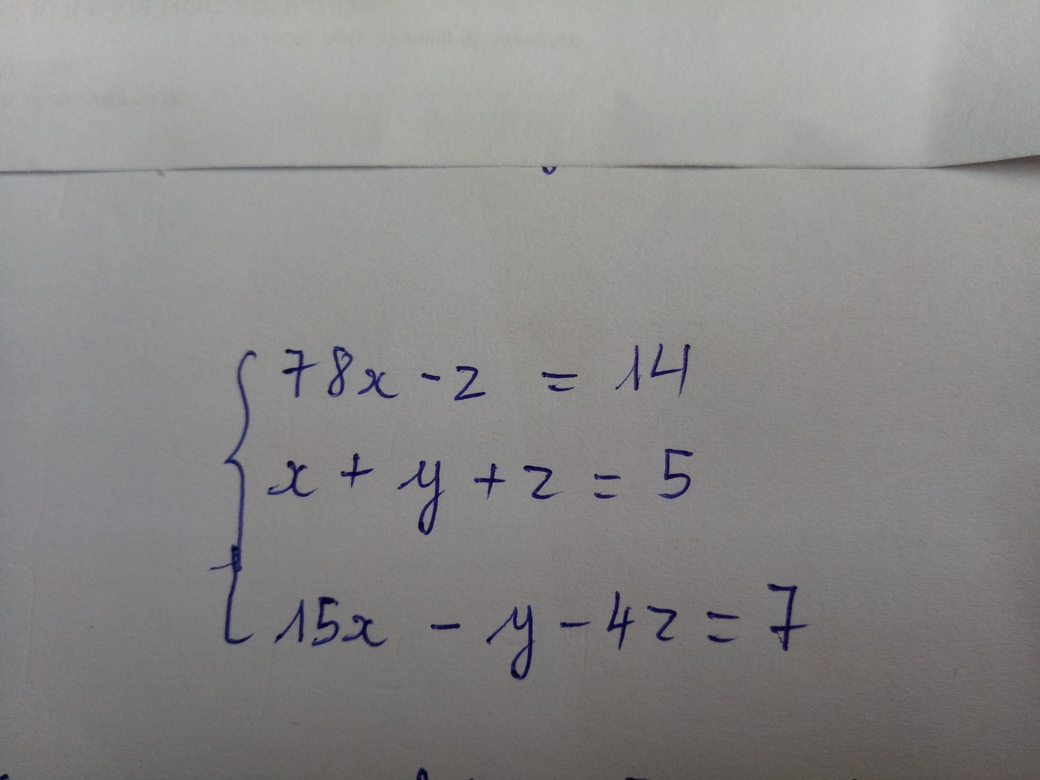 78x - z = 14
x + y + z = 5
15x - y - 4z = 7